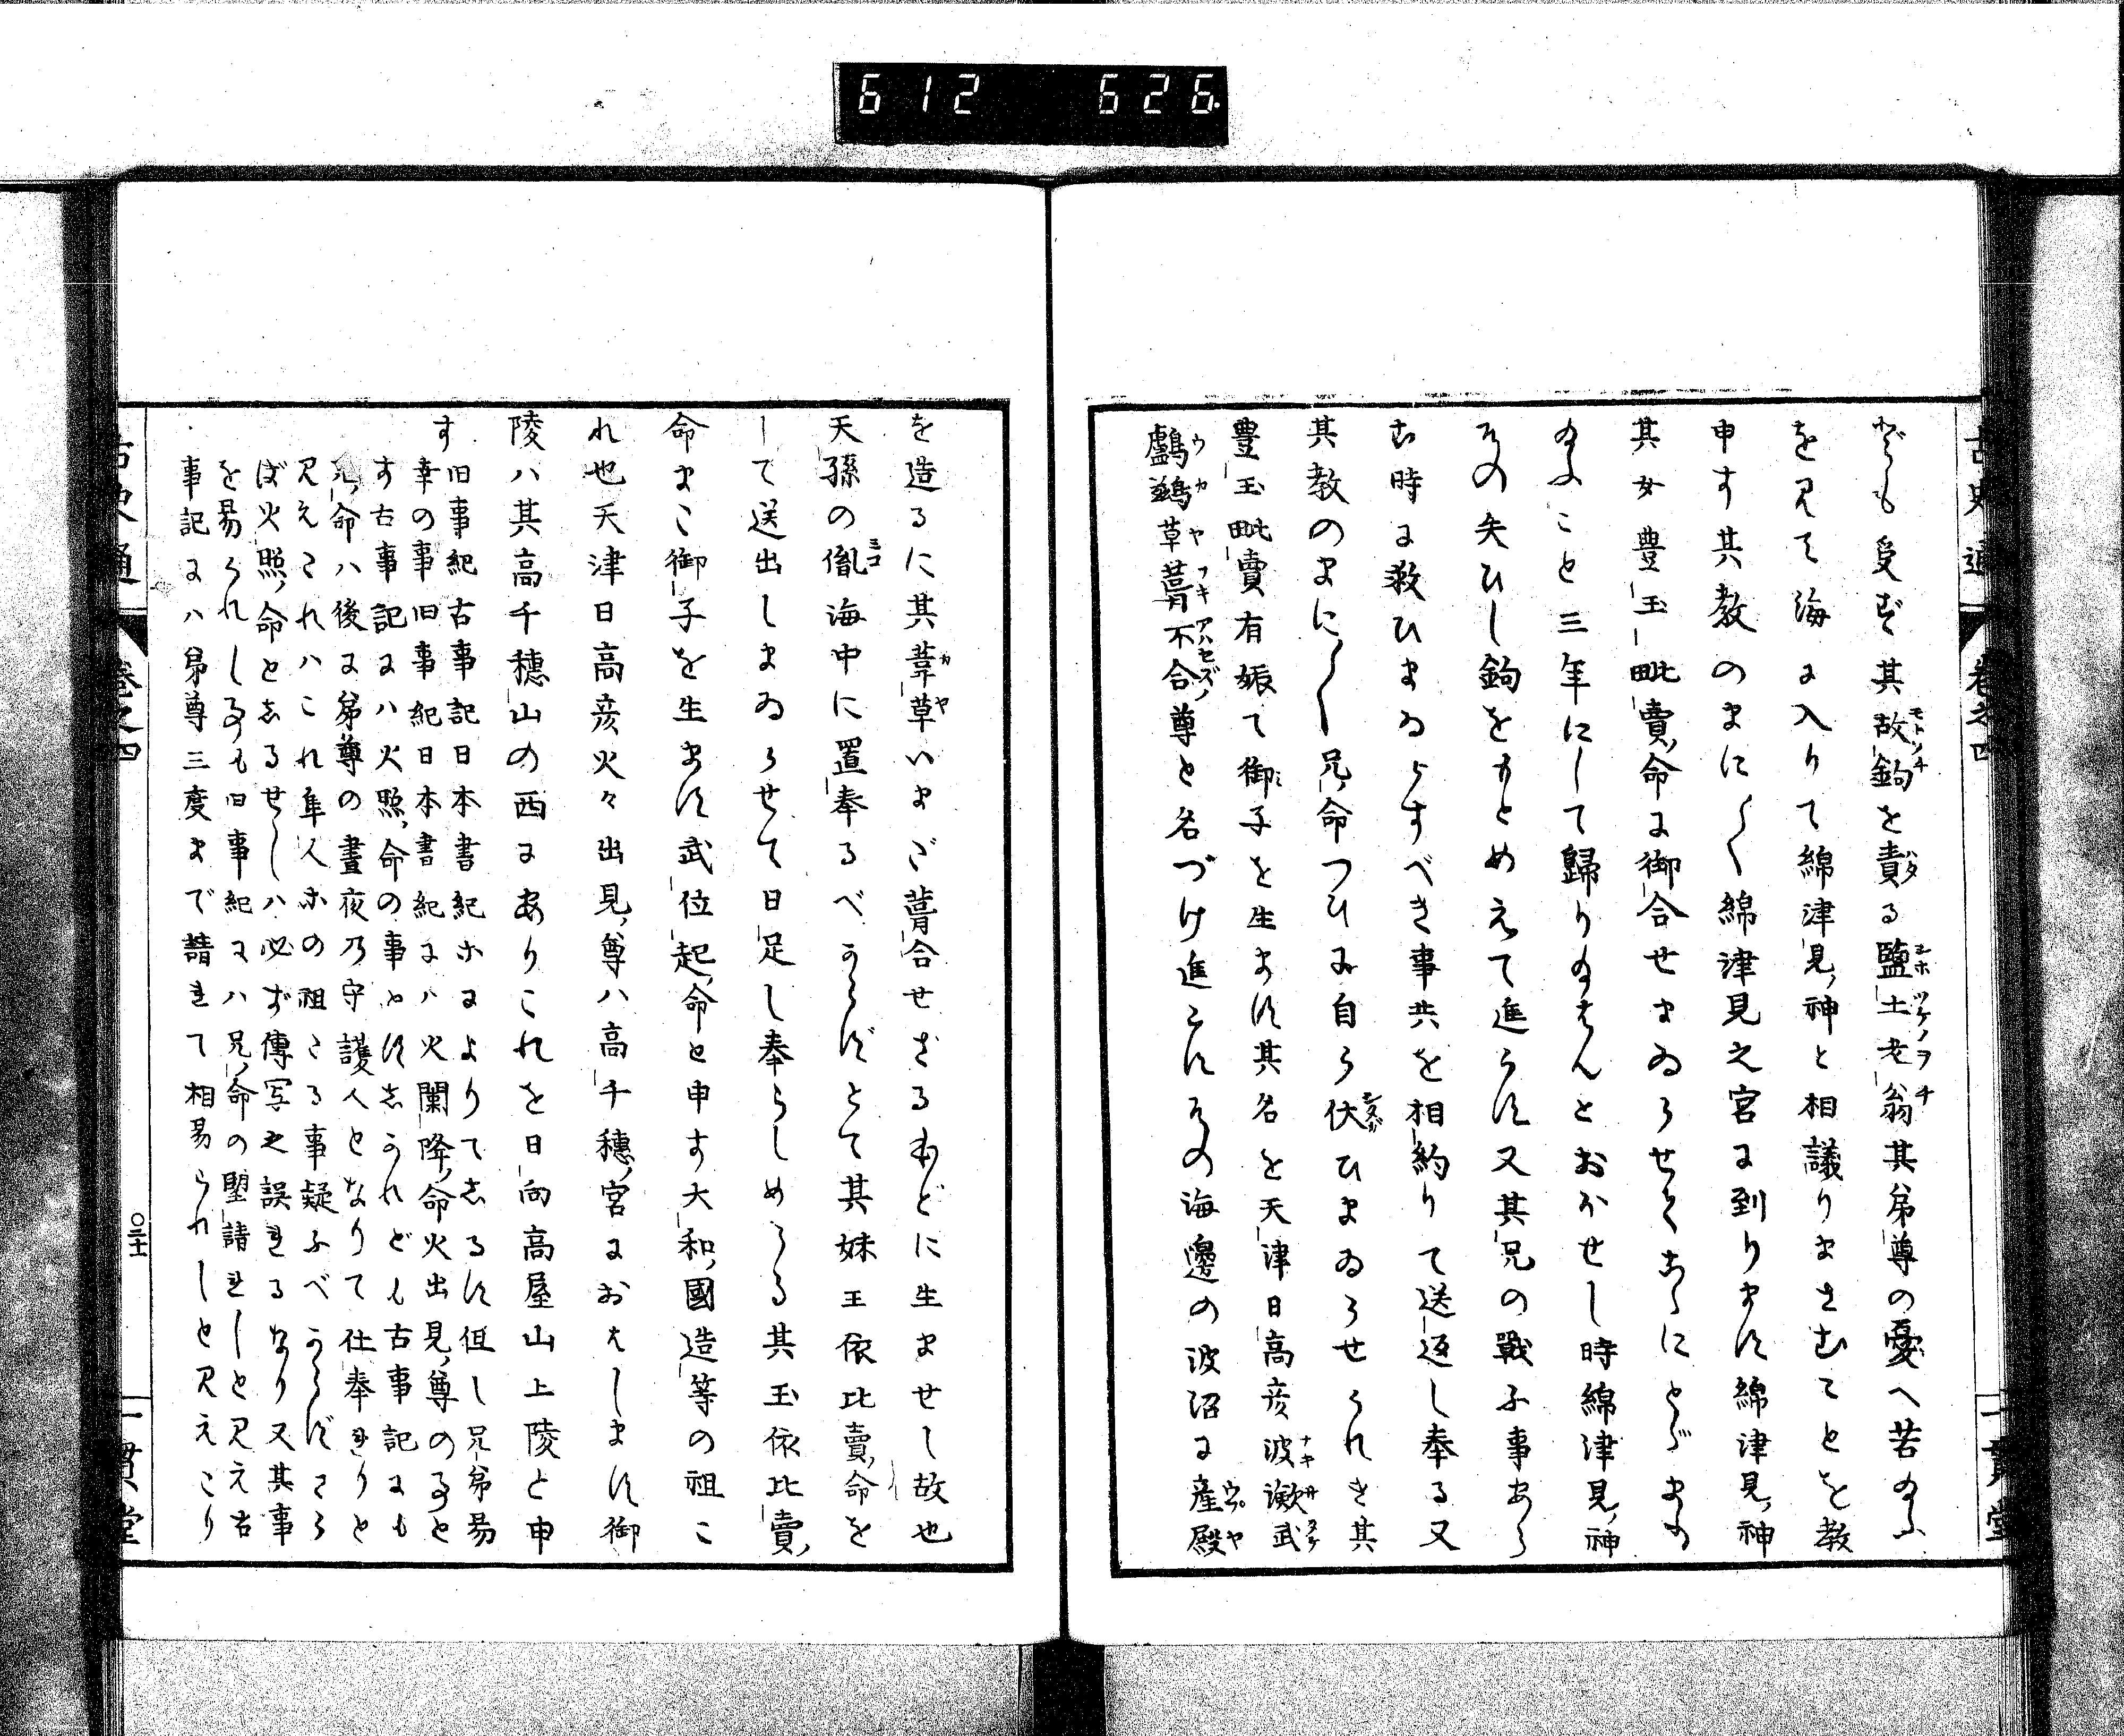 612 626.
古史通 卷之四 一貫堂
れども受ず其故鉤を責る鹽土老翁其弟尊の憂へ苦み給ふ
を見て海に入りて綿津見神と相議りまさむてとを教
申す其教のまに〱綿津見之宮に到ります綿津見神
其女豊玉毗賣命に御合せまゐらせて
ふこと三年にして歸り給はんとおほせし時綿津見神
その失ひし鉤をもとめえて進らす又其兄の戰ふ事あら
む時に救ひまゐらすべき事共を相約りて送返し奉る又
其教のまに〱兄命つひに自ら伏ひまゐらせられき其
豊玉毗賣有娠て御子を生ます其名を天津日高彦波瀲武
鸕鷀草葺不合尊と名づけ進らすその海邊の波沼に産殿
を造るに其葦草いまだ葺合せざるほどに生ませし故也
天孫の胤海中に置奉るべからずとて其妹玉依比賣命を
して送出しまゐらせて日足し奉らしめらる其玉依比賣
命まご御子を生ます武位起命と申す大和國造等の祖こ
れ也天津日高彦火々出見尊ハ高千穗宮におはします御
陵ハ其高千穗山の西にありこれを日向高屋山上陵と申
す
旧事紀古事記日本書紀ホによりてしるす但し兄弟易
幸の事旧事紀日本書紀にハ火闌降命火出見尊の事と
す古事記にハ火照命の事とすしかれども古事記にも
兄命ハ後に弟尊の晝夜乃守護人となりて仕奉れりと
見えたれハこれ隼人ホの祖たる事疑ふべからずさら
ば火照命としるせしハ必ず傳写之誤れるなり又其事
を易られし事も旧事紀にハ兄命の堅請れしと見え古
事記にハ弟尊三度まで請れて相易られしと見えたり
古史通 卷之四 〇三十一 一貫堂